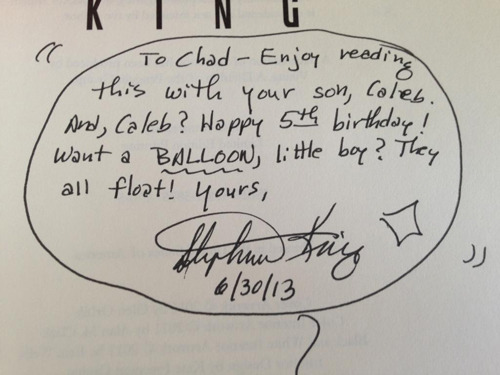 KING
“
To Chad – Enjoy reading
this with your son, Caleb.
And, Caleb? Happy 5th birthday!
Want a BALLOON, little boy? They
all float! Yours,
Stephen King
6/30/13
”